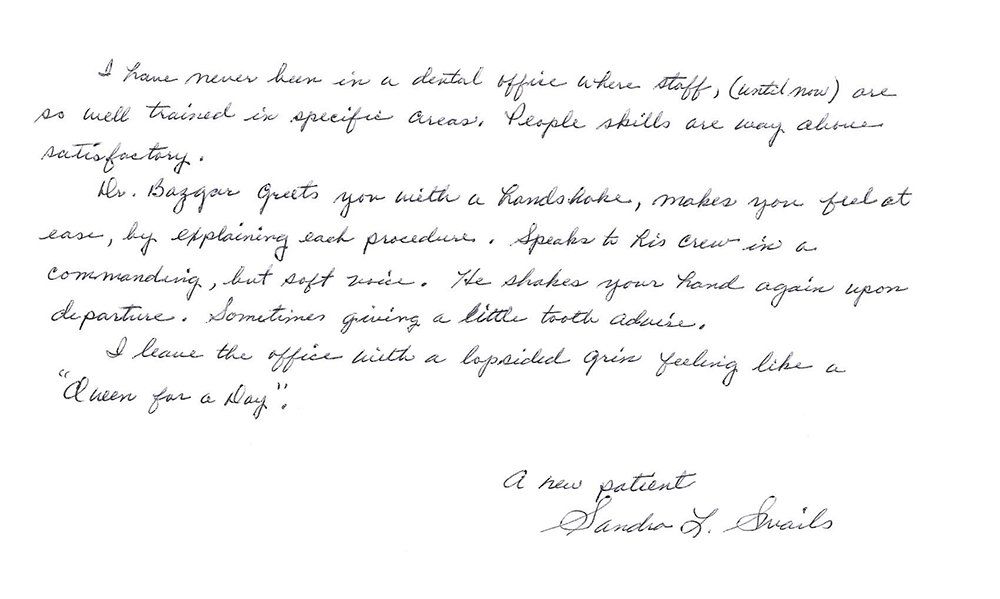 I have never been in a dental office where staff, (until now) are
so well trained in specific areas. People skills are way above
satisfactory.
Dr. Bazgar Greets you with a handshake, makes you feel at
ease, by explaining each procedure. Speaks to his crew in a
commanding, but soft voice. He shakes your hand again upon
departure. Sometimes giving a little tooth advise.
I leave the office with a lopsided grin feeling like a
"Queen for a Day".
A new patient
Sandra L. Swails